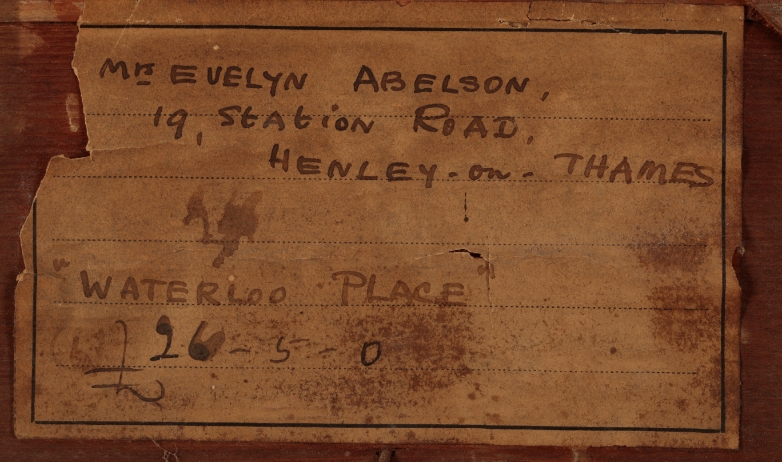 Mrs EVELYN ABELSON,
19, Station ROAD,
HENLEY-on-THAMES
"WATERLOO PLACE"
26-5-0